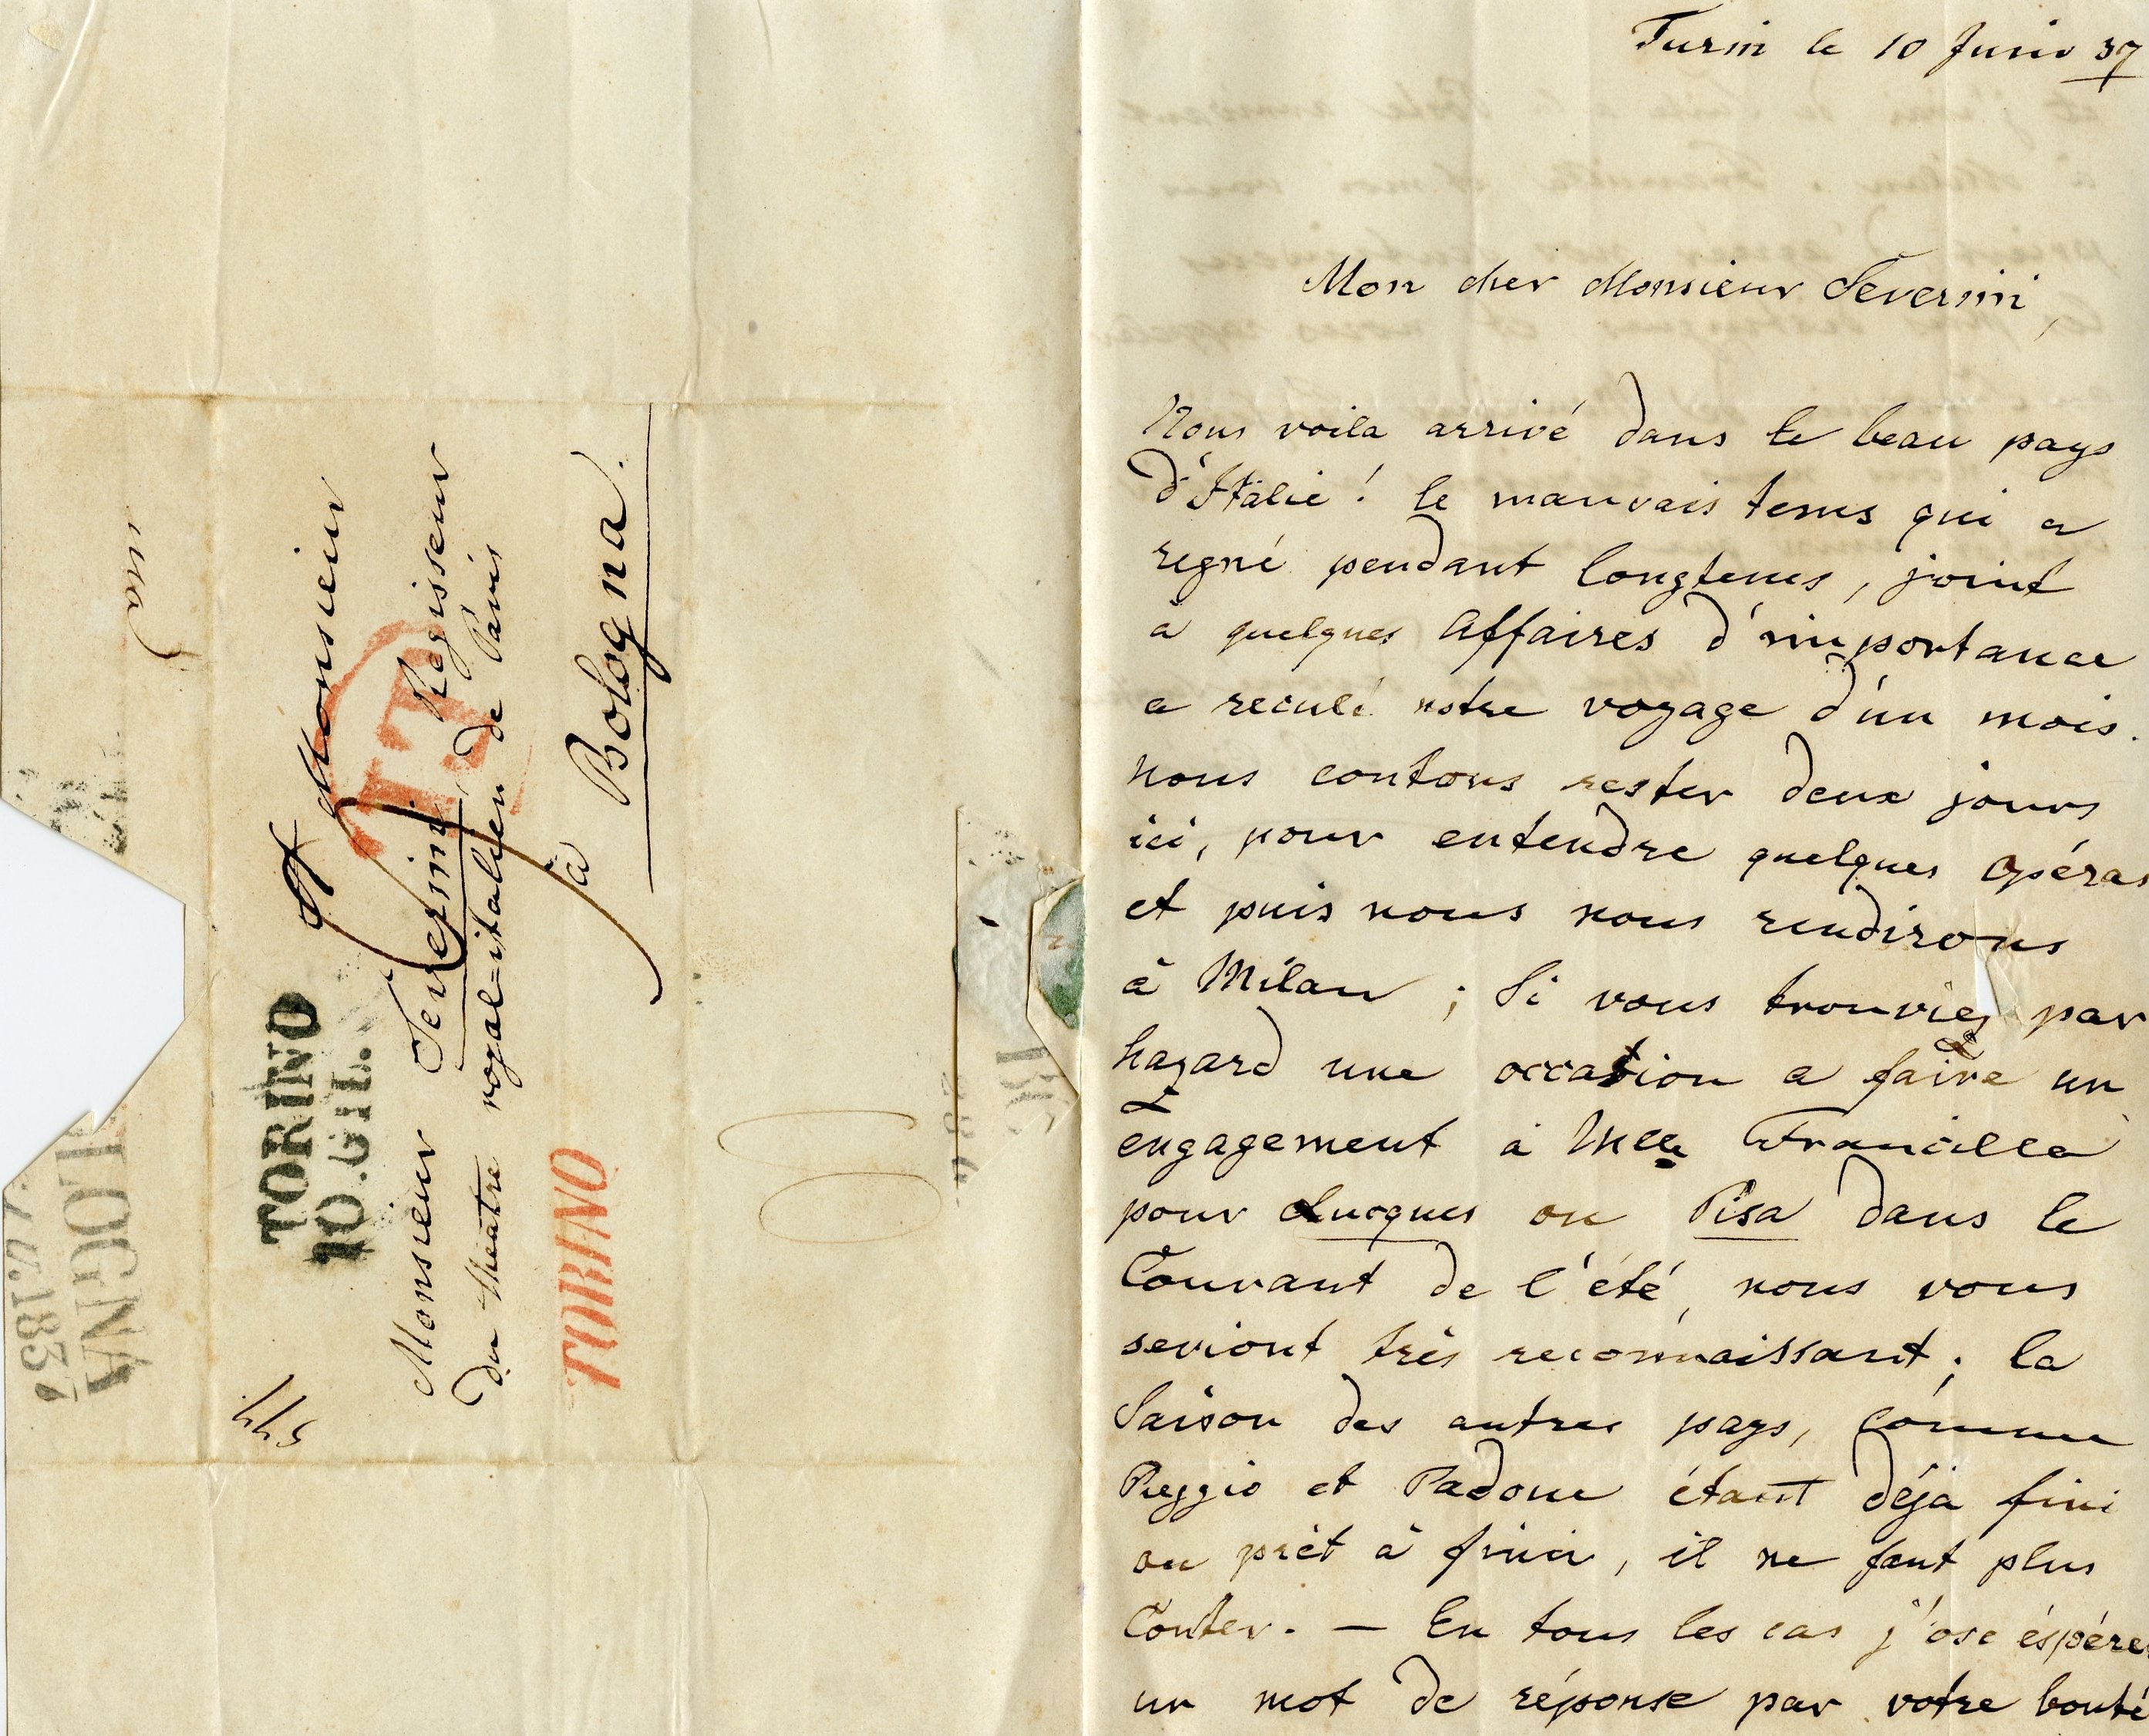 A Monsieur
Monsieur Severini Regisseur
du theatre royal-italien de Paris
à Bologna.
TORINO
10.GIU.
TORINO
L.T.
BOLOGNA
1837
Turin le 10 Juin 37
Mon cher Monsieur Severini,
Nous voila arrivé dans le beau pays
d'Italie! le mauvais tems qui a
regné pendant longtems, joint
a quelques affaires d'importance
a reculé notre voyage d'un mois.
nous contons rester deux jours
ici, pour entendre quelques opéras
et puis nous nous rendirons
à Milan; Si vous trouviez par
hazard une occasion a faire un
engagement à Mlle Francilla
pour Lucques ou Pisa dans le
Courant de l'été, nous vous
seriont très reconnaissant; la
Saison des autres pays, comme
Reggio et Padoue étant déja fini
ou prèt à finir, il ne faut plus
Conter. — En tous les cas j'ose éspérer
un mot de réponse par votre bonté